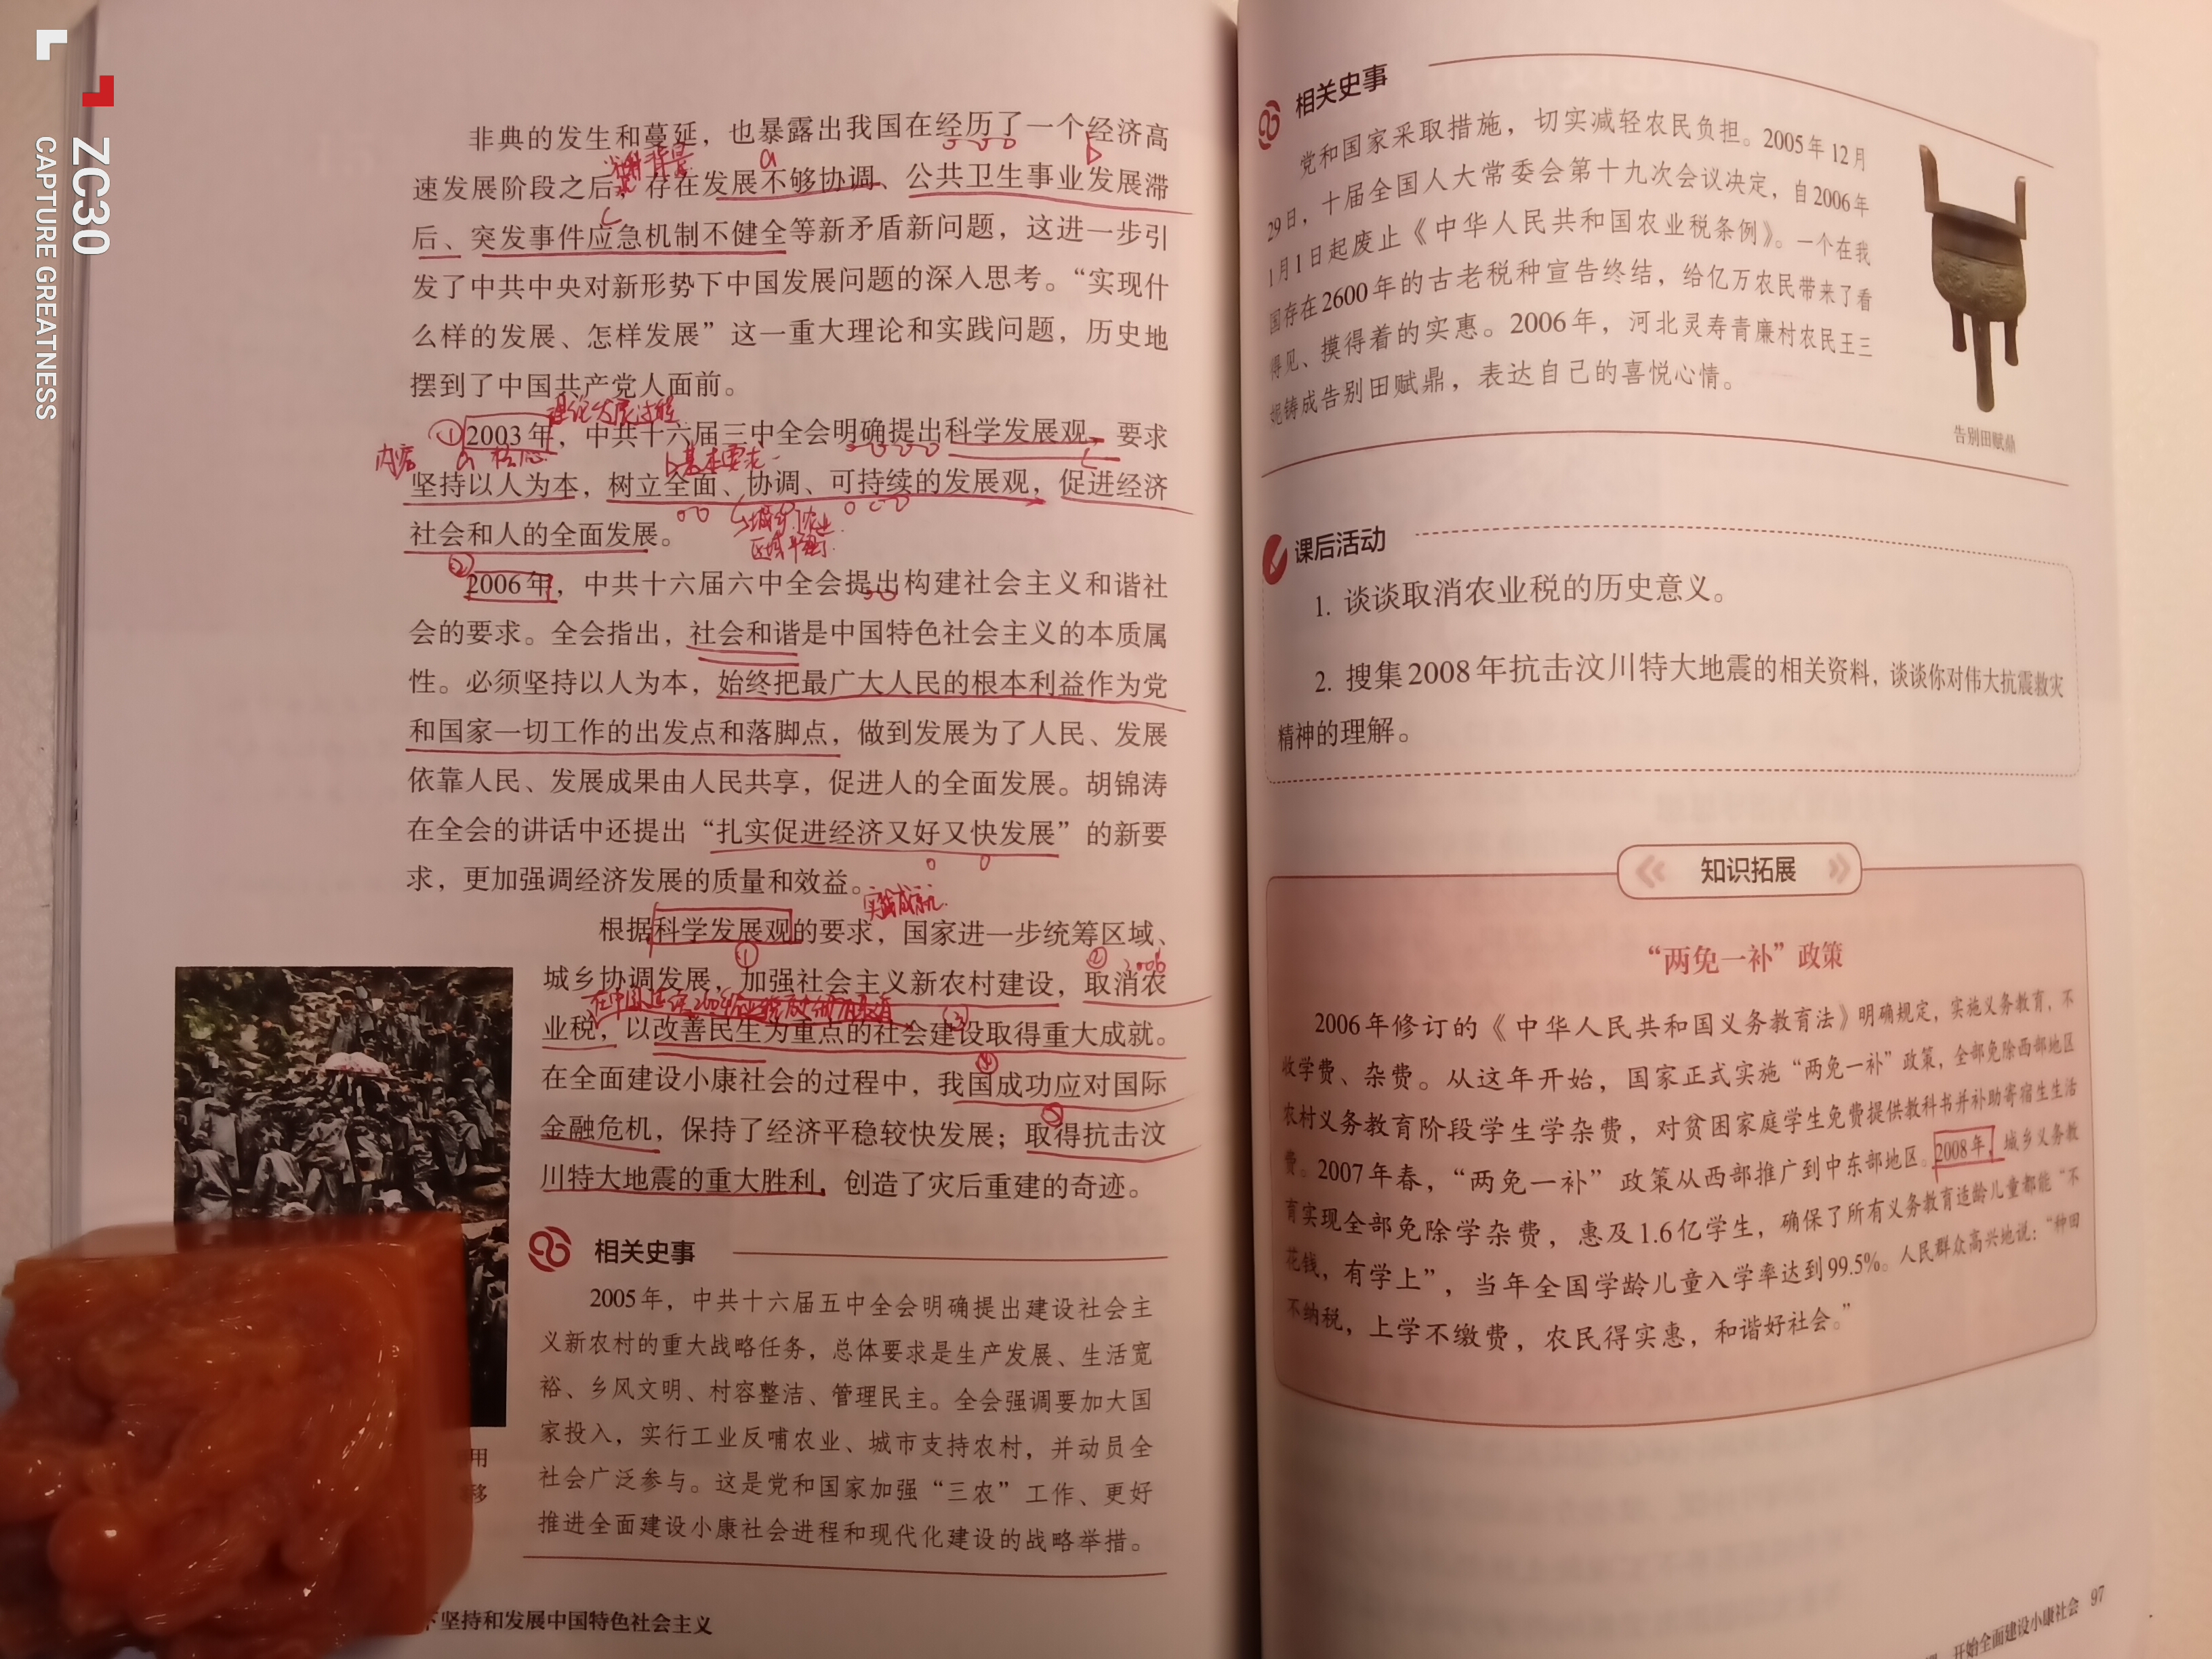 ZC30
CAPTURE GREATNESS
非典的发生和蔓延，也暴露出我国在经历了一个经济高
速发展阶段之后，存在发展不够协调、公共卫生事业发展滞
后、突发事件应急机制不健全等新矛盾新问题，这进一步引
发了中共中央对新形势下中国发展问题的深入思考。“实现什
么样的发展、怎样发展”这一重大理论和实践问题，历史地
摆到了中国共产党人面前。
理论发展过程
①2003年，中共十六届三中全会明确提出科学发展观，要求
内容 a 核心 b基本要求 c
坚持以人为本，树立全面、协调、可持续的发展观，促进经济
社会和人的全面发展。
②
2006年，中共十六届六中全会提出构建社会主义和谐社
会的要求。全会指出，社会和谐是中国特色社会主义的本质属
性。必须坚持以人为本，始终把最广大人民的根本利益作为党
和国家一切工作的出发点和落脚点，做到发展为了人民、发展
依靠人民、发展成果由人民共享，促进人的全面发展。胡锦涛
在全会的讲话中还提出“扎实促进经济又好又快发展”的新要
求，更加强调经济发展的质量和效益。
实践成就
根据科学发展观的要求，国家进一步统筹区域、
① ② 2006
城乡协调发展，加强社会主义新农村建设，取消农
③
业税，以改善民生为重点的社会建设取得重大成就。
④
在全面建设小康社会的过程中，我国成功应对国际
⑤
金融危机，保持了经济平稳较快发展；取得抗击汶
川特大地震的重大胜利，创造了灾后重建的奇迹。
用
移
相关史事
2005年，中共十六届五中全会明确提出建设社会主
义新农村的重大战略任务，总体要求是生产发展、生活宽
裕、乡风文明、村容整洁、管理民主。全会强调要加大国
家投入，实行工业反哺农业、城市支持农村，并动员全
社会广泛参与。这是党和国家加强“三农”工作、更好
推进全面建设小康社会进程和现代化建设的战略举措。
下坚持和发展中国特色社会主义
相关史事
党和国家采取措施，切实减轻农民负担。2005年12月
29日，十届全国人大常委会第十九次会议决定，自2006年
1月1日起废止《中华人民共和国农业税条例》。一个在我
国存在2600年的古老税种宣告终结，给亿万农民带来了看
得见、摸得着的实惠。2006年，河北灵寿青廉村农民王三
妮铸成告别田赋鼎，表达自己的喜悦心情。
告别田赋鼎
课后活动
1. 谈谈取消农业税的历史意义。
2. 搜集2008年抗击汶川特大地震的相关资料，谈谈你对伟大抗震救灾
精神的理解。
知识拓展
“两免一补”政策
2006年修订的《中华人民共和国义务教育法》明确规定，实施义务教育，不
收学费、杂费。从这年开始，国家正式实施“两免一补”政策，全部免除西部地区
农村义务教育阶段学生学杂费，对贫困家庭学生免费提供教科书并补助寄宿生生活
费。2007年春，“两免一补”政策从西部推广到中东部地区。2008年，城乡义务教
育实现全部免除学杂费，惠及1.6亿学生，确保了所有义务教育适龄儿童都能“不
花钱，有学上”，当年全国学龄儿童入学率达到99.5%。人民群众高兴地说：“种田
不纳税，上学不缴费，农民得实惠，和谐好社会。”
开始全面建设小康社会 97